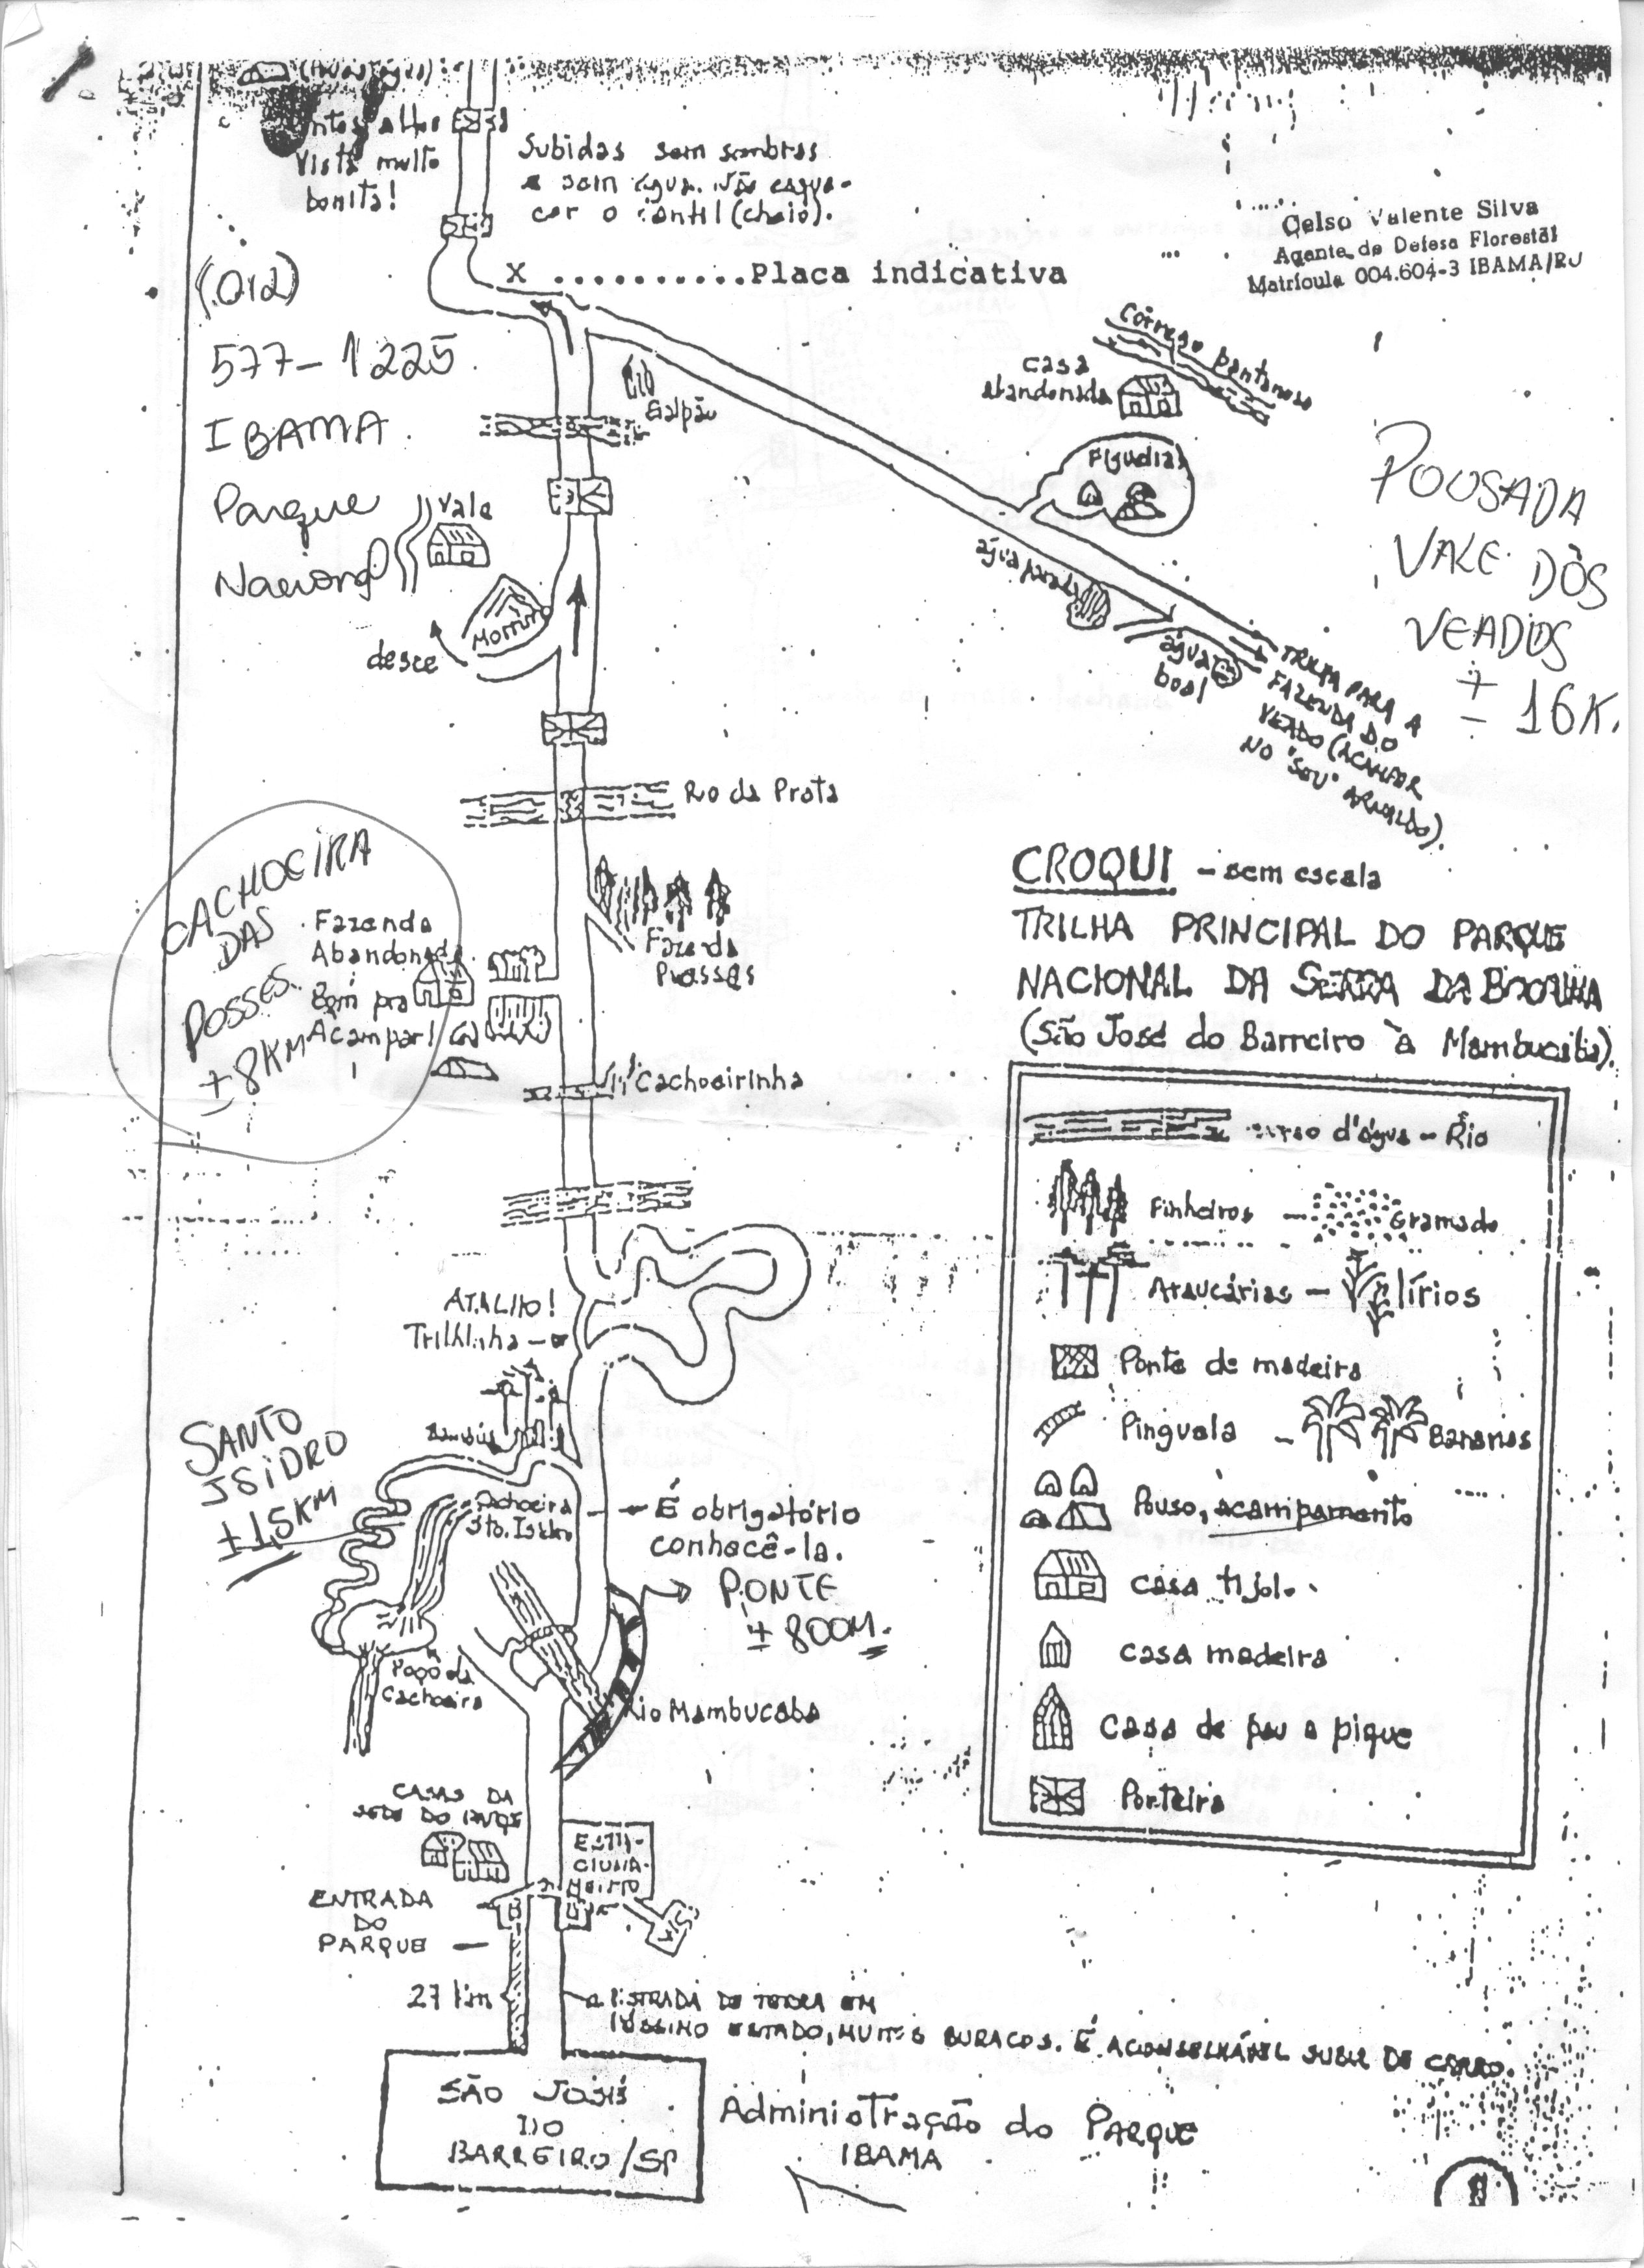 Vista muito
bonita!
Subidas sem sombras
e sem água. Não esque-
cer o cantil (cheio).
Celso Valente Silva
Agente de Defesa Florestal
Matrícula 004.604-3 IBAMA/RJ
X ..........Placa indicativa
(012)
577-1225
IBAMA
Parque
Nacional
Córrego pantanoso
casa
abandonada
Galpão
Vale
Morrinho
desce
água parada
água
boa!
TRILHA PARA A
FAZENDA DO
VEADO (ACAMPAR
NO "SEU" ARALDO).
POUSADA
VALE DOS
VEADOS
± 16K.
Rio da Prata
CACHOEIRA
DAS
POSSES
± 8KM
Fazenda
Abandonada
Bem pra
Acampar!
Cachoeirinha
CROQUI - sem escala
TRILHA PRINCIPAL DO PARQUE
NACIONAL DA SERRA DA BOCAINA
(São José do Barreiro à Mambucaba).
d'água - Rio
Pinheiros - Gramado
Araucárias - lírios
Ponte de madeira
Pinguela - Bananas
Pouso, acampamento
casa tijolo
casa madeira
Casa de pau a pique
Porteira
ATALHO!
Trilhinha
Bambús
SANTO
ISIDRO
± 1,5KM
Cachoeira
Sto. Isidro
É obrigatório
conhecê-la.
PONTE
± 800M.
Poço da
Cachoeira
Rio Mambucaba
CASAS DA
SEDE DO
ESTA-
CIONA-
MENTO
ENTRADA
DO
PARQUE
27 km
ESTRADA DE TERRA EM
PÉSSIMO ESTADO, MUITOS BURACOS. É ACONSELHÁVEL SUBIR DE CARRO.
SÃO JOSÉ
DO
BARREIRO/SP
Administração do PARQUE
IBAMA